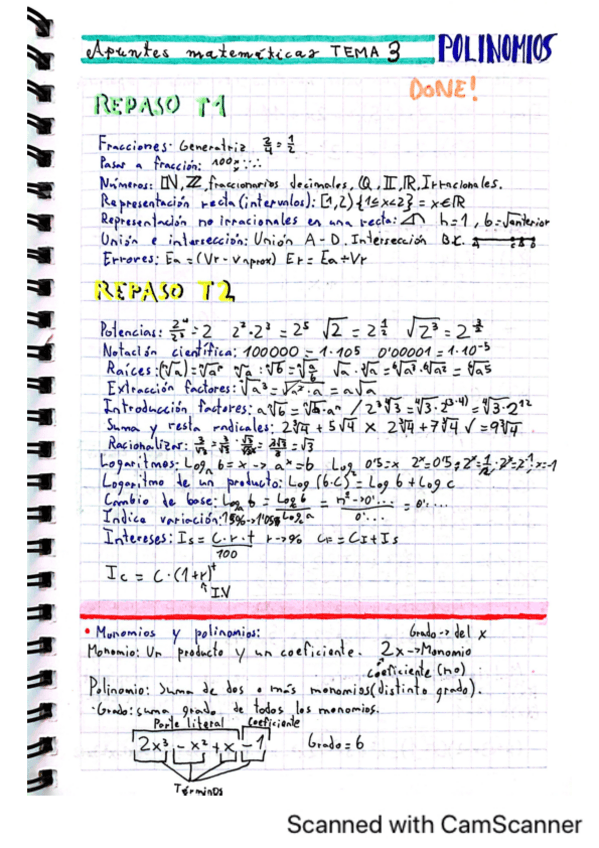 Apuntes matemáticas TEMA 3 POLINOMIOS
DONE!
REPASO T1
Fracciones: Generatriz 2/4 = 1/2
Pasar a fracción: 100x
Números: ℕ, ℤ, fraccionarios decimales, ℚ, 𝕀, ℝ, Irracionales.
Representación recta (intervalos): [1,2) {1≤x<2} = x∈ℝ
Representación no irracionales en una recta: h=1, b=√anterior
Unión e intersección: Unión A-D. Intersección B.C.
Errores: Ea = (Vr - Vaprox) Er = Ea÷Vr
REPASO T2
Potencias: 2⁴/2³ = 2 2²·2³ = 2⁵ √2 = 2^1/2 √2³ = 2^3/2
Notación científica: 100000 = 1·105 0'00001 = 1·10⁻⁵
Extracción factores: √a³ = √a²·a = a√a
Suma y resta radicales: 2∛4 + 5√4 × 2∛4 + 7∛4 √ = 9∛4
Racionalizar:
Logaritmos: Loga b = x -> aˣ = b Log2 0'5 = x 2ˣ = 0'5; 2ˣ = 1/2; 2ˣ = 2⁻¹; x = -1
Logaritmo de un producto: Log (b·c) = Log b + Log c
Cambio de base: Loga b = Log b / Log a = nº->0'... / 0'... = 0'...
Indice variación:
Intereses: Is = C·r·t / 100 r->% CF = CI + Is
Ic = C·(1+r)ᵗ
I.V
• Monomios y polinomios: Grado -> del x
Monomio: Un producto y un coeficiente. 2x -> Monomio
Coeficiente (no)
Polinomio: Suma de dos o más monomios (distinto grado).
·Grado: suma grado de todos los monomios.
Parte literal Coeficiente
2x³ - x² + x - 1 Grado = 6
Términos
Scanned with CamScanner